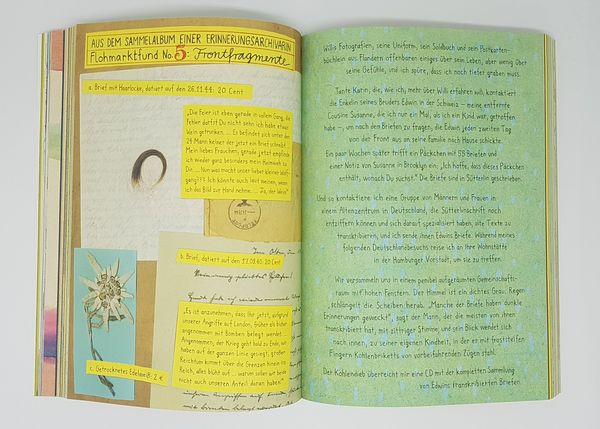 AUS DEM SAMMELALBUM EINER ERINNERUNGSARCHIVARIN
Flohmarktfund No. 5: Frontfragmente
a. Brief mit Haarlocke, datiert auf den 26.11.44: 20 Cent
„Die Feier ist eben gerade in vollem Gang, die
Fehler darfst Du nicht sehn ich habe etwas
Wein getrunken.... Es befindet sich unter den
24 Mann keiner der jetzt ein Brief schreibt.
Mein liebes Frauchen, gerade jetzt empfinde
ich wieder ganz besonders mein Heimweh zu
Dir.... Nun was macht unser lieber kleiner Wolf-
gang!?? Ich könnte auch laut meinen, wenn
ich das Bild zur Hand nehme.... Ja, der Wein"
b. Brief, datiert auf den 17.09.40: 20 Cent
„Es ist anzunehmen, dass Ihr jetzt, aufgrund
unserer Angriffe auf London, früher als bisher
angenommen mit Bomben belegt werdet.
Angenommen, der Krieg geht bald zu Ende, wir
haben auf der ganzen Linie gesiegt, großer
Reichtum kommt über die Grenzen hinein ins
Reich, alles blüht auf ... warum sollen wir beide
nicht auch unseren Anteil daran haben?"
c. Getrocknetes Edelweiß: 2 €
Willis Fotografien, seine Uniform, sein Soldbuch und sein Postkarten-
büchlein aus Flandern offenbaren einiges über sein Leben, aber wenig über
seine Gefühle, und ich spüre, dass ich noch tiefer graben muss.
Tante Karin, die, wie ich, mehr über Willi erfahren will, kontaktiert
die Enkelin seines Bruders Edwin in der Schweiz – meine entfernte
Cousine Susanne, die ich nur ein Mal, als ich ein Kind war, getroffen
habe –, um nach den Briefen zu fragen, die Edwin jeden zweiten Tag
von der Front aus an seine Familie nach Hause schickte.
Ein paar Wochen später trifft ein Päckchen mit 55 Briefen und
einer Notiz von Susanne in Brooklyn ein: „Ich hoffe, dass dieses Päckchen
enthält, wonach Du suchst." Die Briefe sind in Sütterlin geschrieben.
Und so kontaktiere ich eine Gruppe von Männern und Frauen in
einem Altenzentrum in Deutschland, die Sütterlinschrift noch
entziffern können und sich darauf spezialisiert haben, alte Texte zu
transkribieren, und ich sende ihnen Edwins Briefe. Während meines
folgenden Deutschlandbesuchs reise ich an ihre Wohnstätte
in der Hamburger Vorstadt, um sie zu treffen.
Wir versammeln uns in einem pastell ausgeräumten Gemeinschafts-
raum mit hohen Fenstern. Der Himmel ist ein dichtes Grau. Regen
schlängelt die Scheiben herab. „Manche der Briefe haben dunkle
Erinnerungen geweckt", sagt der Mann, der die meisten von ihnen
transkribiert hat, mit zittriger Stimme, und sein Blick wendet sich
nach innen, zu seiner eigenen Kindheit, in der er mit frosteifen
Fingern Kohlenbriketts von vorbeifahrenden Zügen stahl.
Der Kohlendieb überreicht mir eine CD mit der kompletten Sammlung
von Edwins transkribierten Briefen.